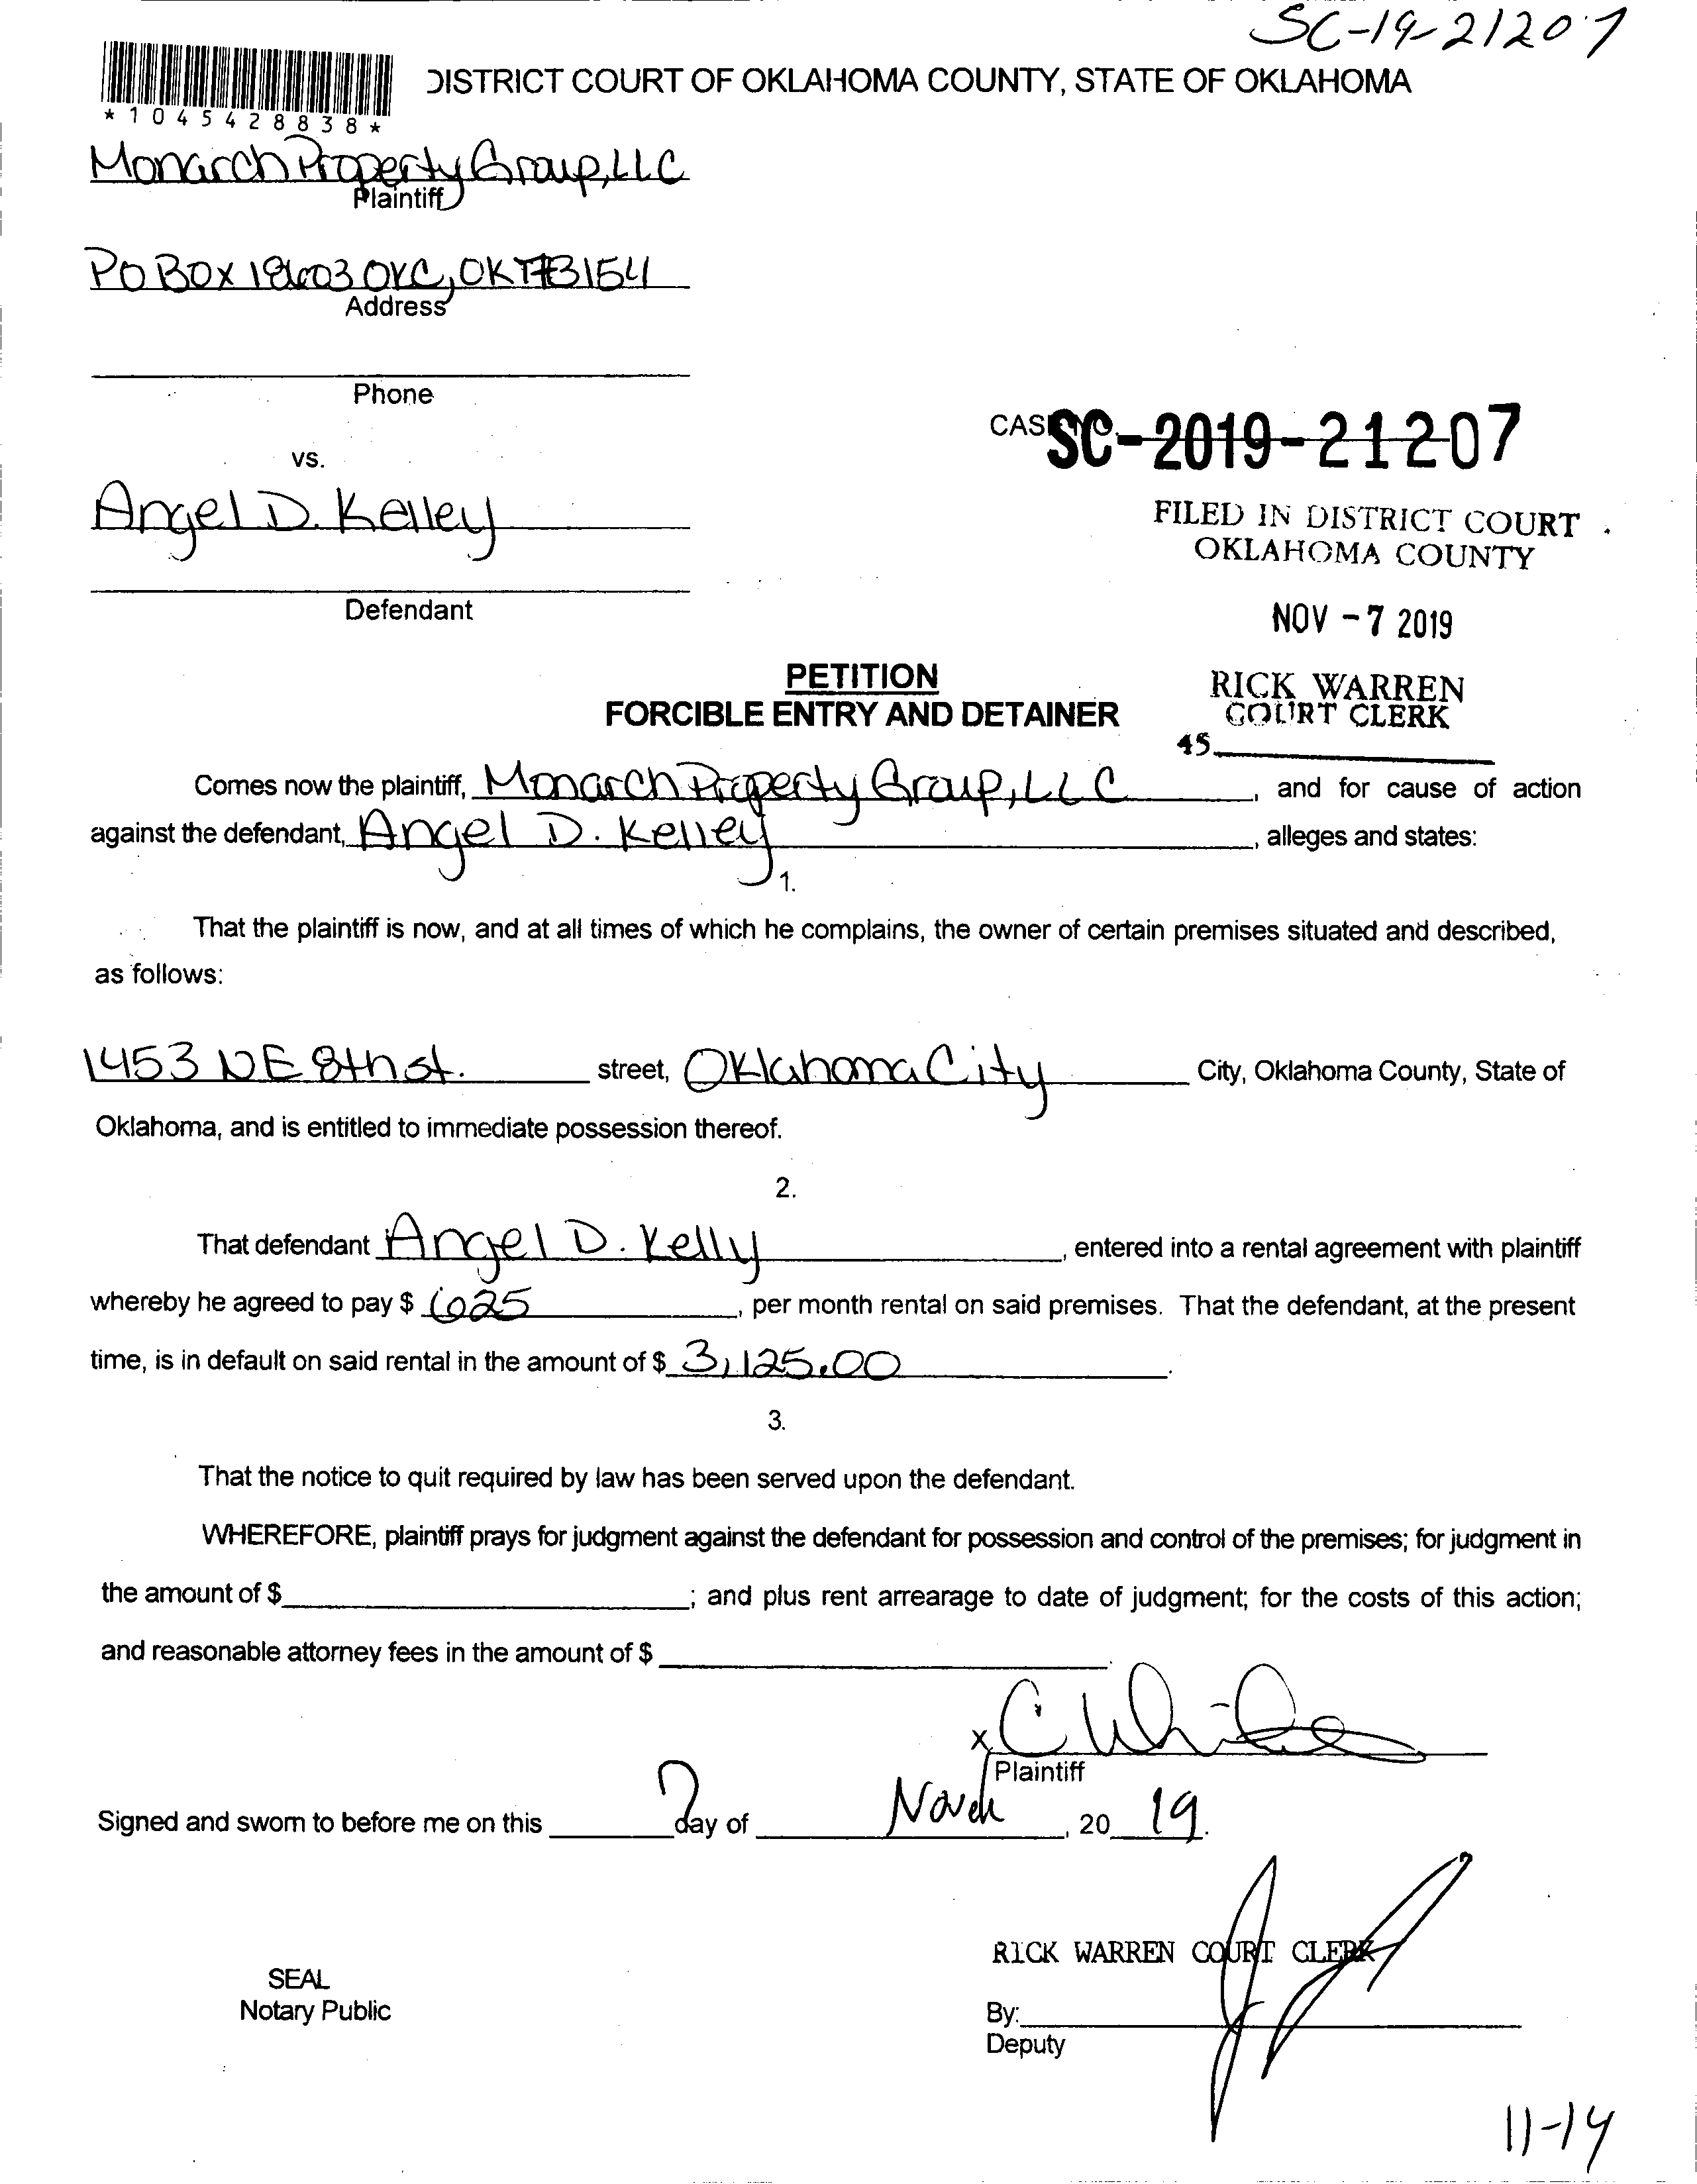 SC-19-21207
*1045428838*
DISTRICT COURT OF OKLAHOMA COUNTY, STATE OF OKLAHOMA
Monarch Property Group, LLC
Plaintiff
PO BOX 18603 OKC, OK 73154
Address
Phone
vs.
CASE NO. SC-2019-21207
Angel D. Kelley
FILED IN DISTRICT COURT
OKLAHOMA COUNTY
Defendant
NOV -7 2019
PETITION
FORCIBLE ENTRY AND DETAINER
RICK WARREN
COURT CLERK
45
Comes now the plaintiff, Monarch Property Group, LLC, and for cause of action
against the defendant, Angel D. Kelley, alleges and states:
1.
That the plaintiff is now, and at all times of which he complains, the owner of certain premises situated and described,
as follows:
1453 NE 8th st. street, Oklahoma City City, Oklahoma County, State of
Oklahoma, and is entitled to immediate possession thereof.
2.
That defendant Angel D. Kelly, entered into a rental agreement with plaintiff
whereby he agreed to pay $ 625, per month rental on said premises. That the defendant, at the present
time, is in default on said rental in the amount of $ 3,125.00.
3.
That the notice to quit required by law has been served upon the defendant.
WHEREFORE, plaintiff prays for judgment against the defendant for possession and control of the premises; for judgment in
the amount of $; and plus rent arrearage to date of judgment; for the costs of this action;
and reasonable attorney fees in the amount of $
X
Plaintiff
Signed and sworn to before me on this 7 day of , 20 19.
RICK WARREN COURT CLERK
SEAL
Notary Public
By:
Deputy
11-14